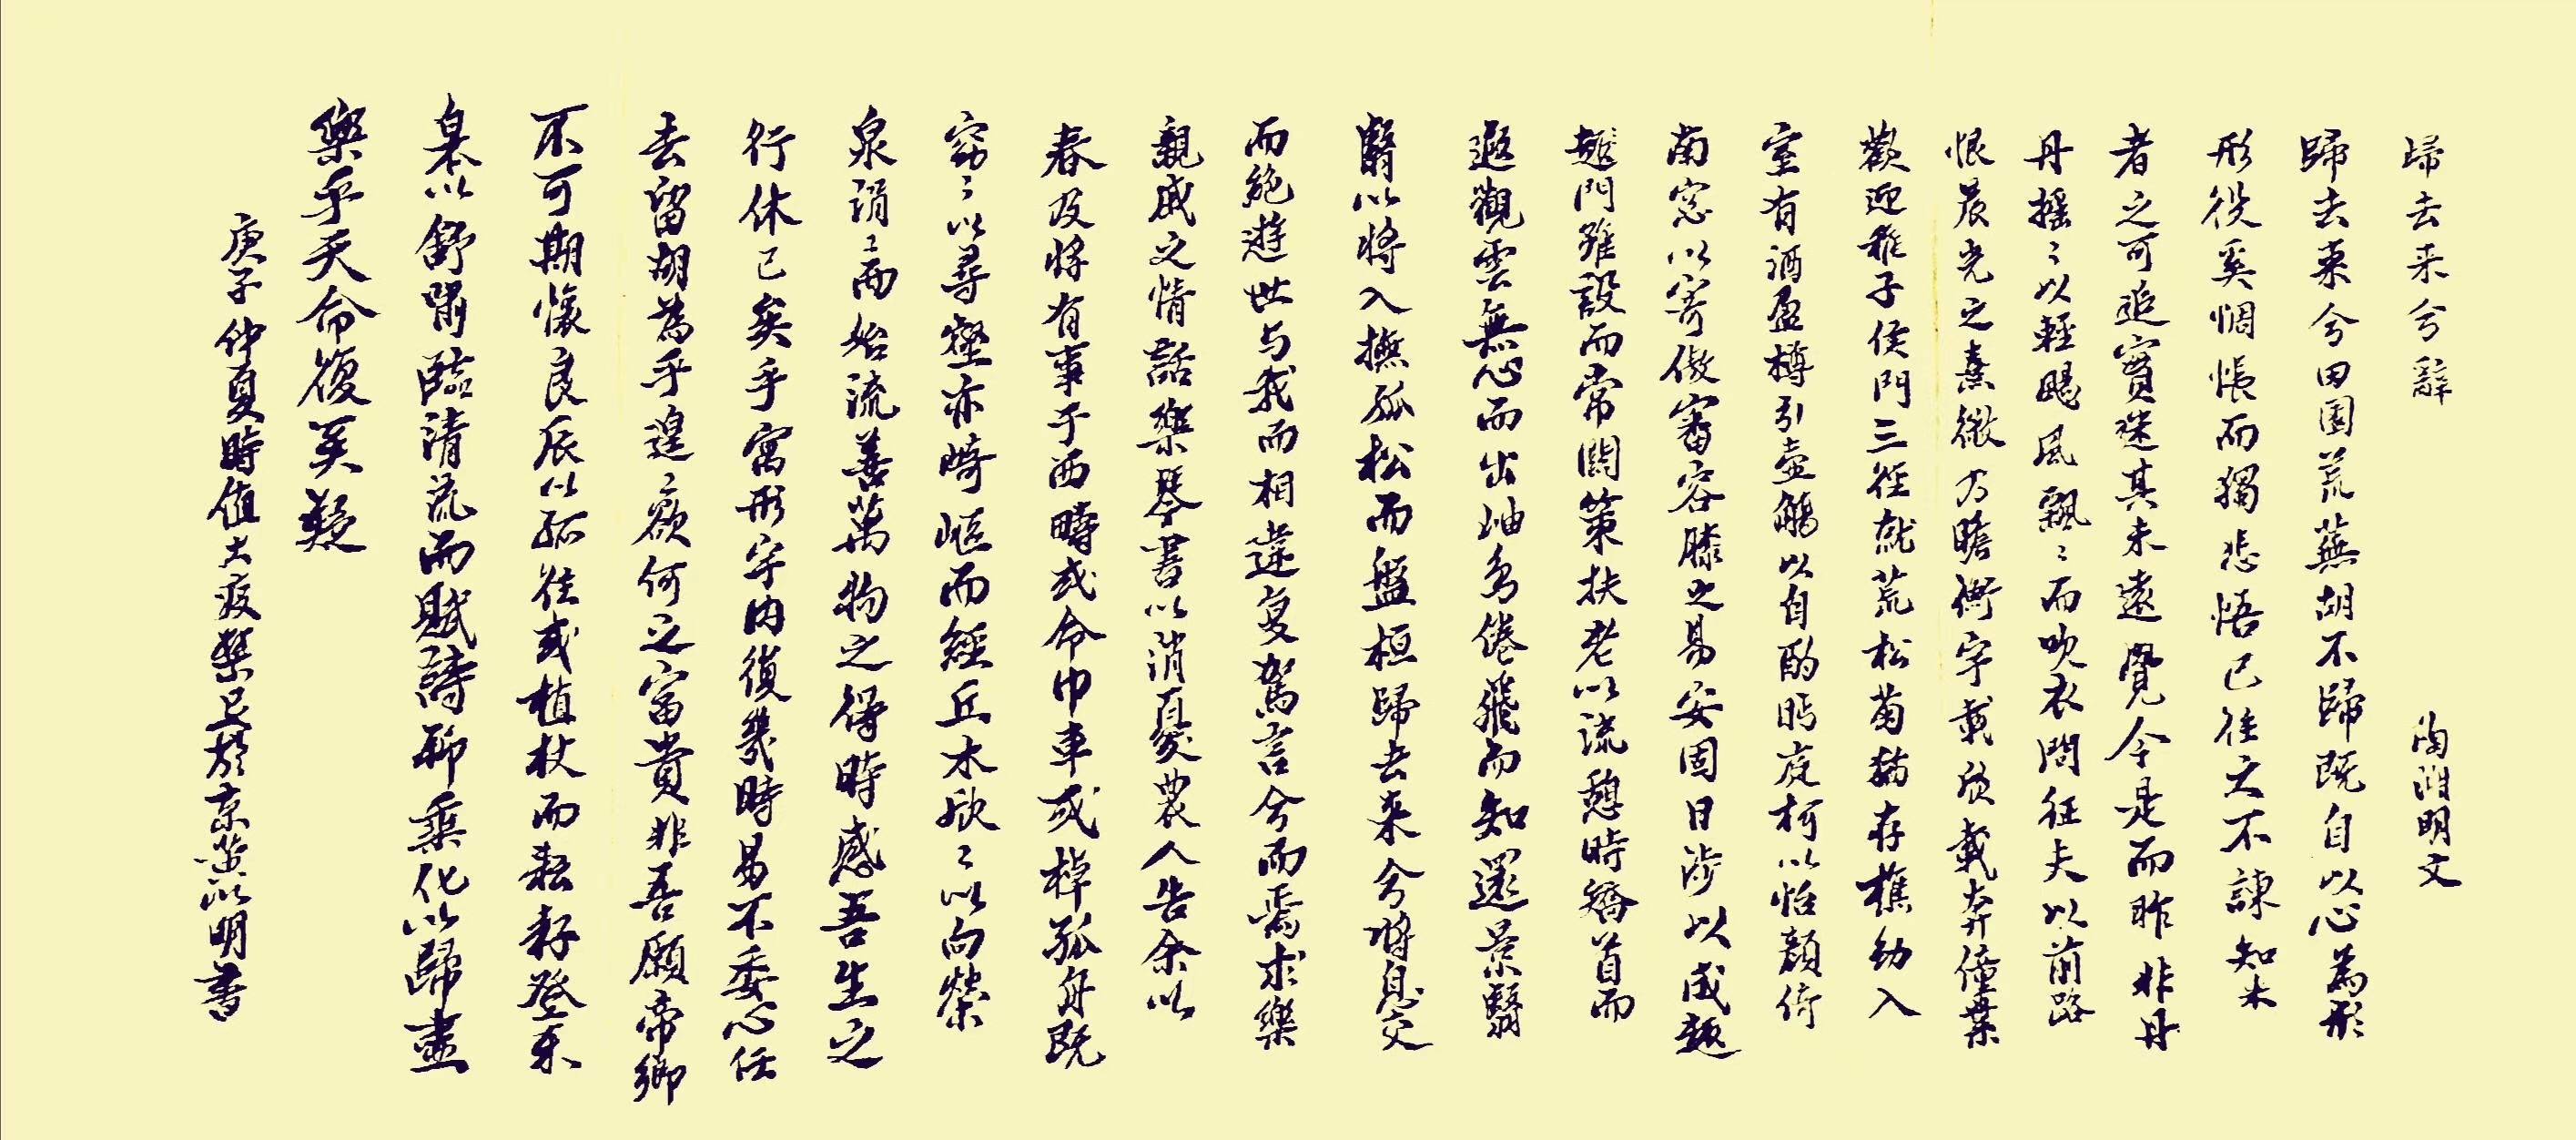 歸去来兮辭 陶淵明文
歸去來兮田園荒蕪胡不歸既自以心為形
形役奚惆悵而獨悲悟已往之不諫知木
者之可追實迷其未遠覺今是而昨非丹
丹摇〻以輕颺風飄〻而吹衣問征夫以前路
恨晨光之熹微乃瞻衡宇載欣載奔僮業
歡迎稚子侯門三徑就荒松菊猶存樵幼入
室有酒盈樽引壺觴以自酌眄庭柯以怡顏倚
南窓以寄傲審容膝之易安固日涉以成趣
趣門雖設而常關策扶老以流憩時矯首而
遐觀雲無心而出岫鳥倦飛而知還景翳
翳以將入撫孤松而盤桓歸去來兮將息交
而絶遊世与我而相違复駕言兮而焉求樂
親戚之情話樂琴書以消憂農人告余以
春及將有事于西疇或命巾車或棹孤舟既
窈〻以尋壑亦崎嶇而經丘木欣〻以向榮
泉涓〻而始流善萬物之得時感吾生之
行休已矣乎寓形宇内復幾時曷不委心任
去留胡為乎遑〻欲何之富貴非吾願帝鄉
不可期懷良辰以孤往或植杖而耘耔登東
皋以舒嘯臨清流而賦詩聊乘化以歸盡
樂乎天命復奚疑
庚子仲夏時值大疫禁足於京 以明書